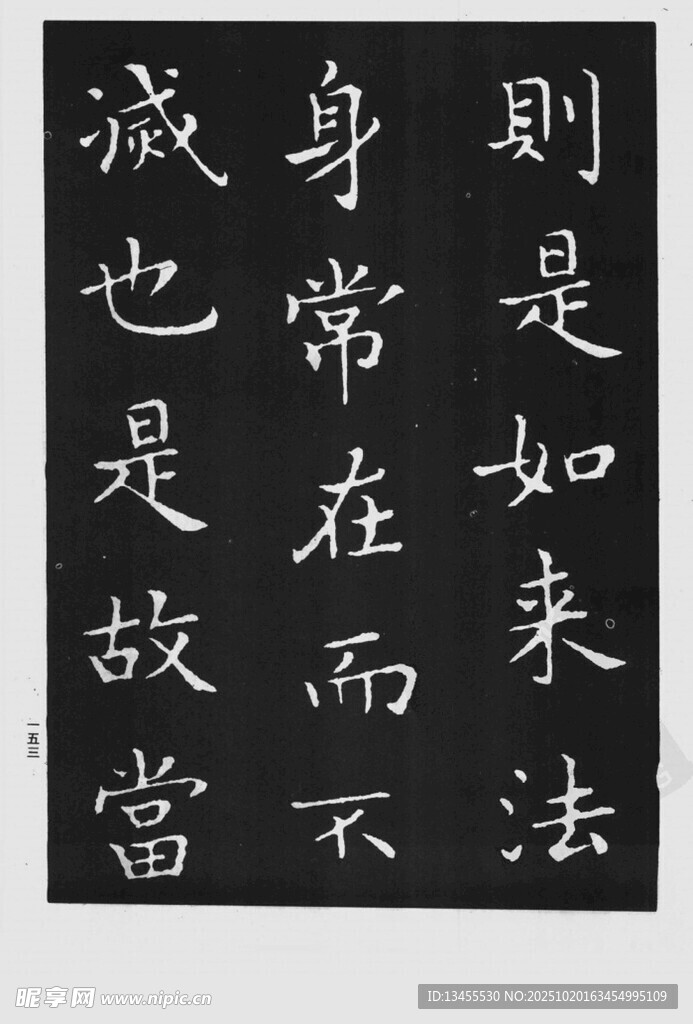 則是如来法
身常在而不
滅也是故當
一五三
昵享网 www.nipic.cn
ID:13455530 NO:20251020163454995109